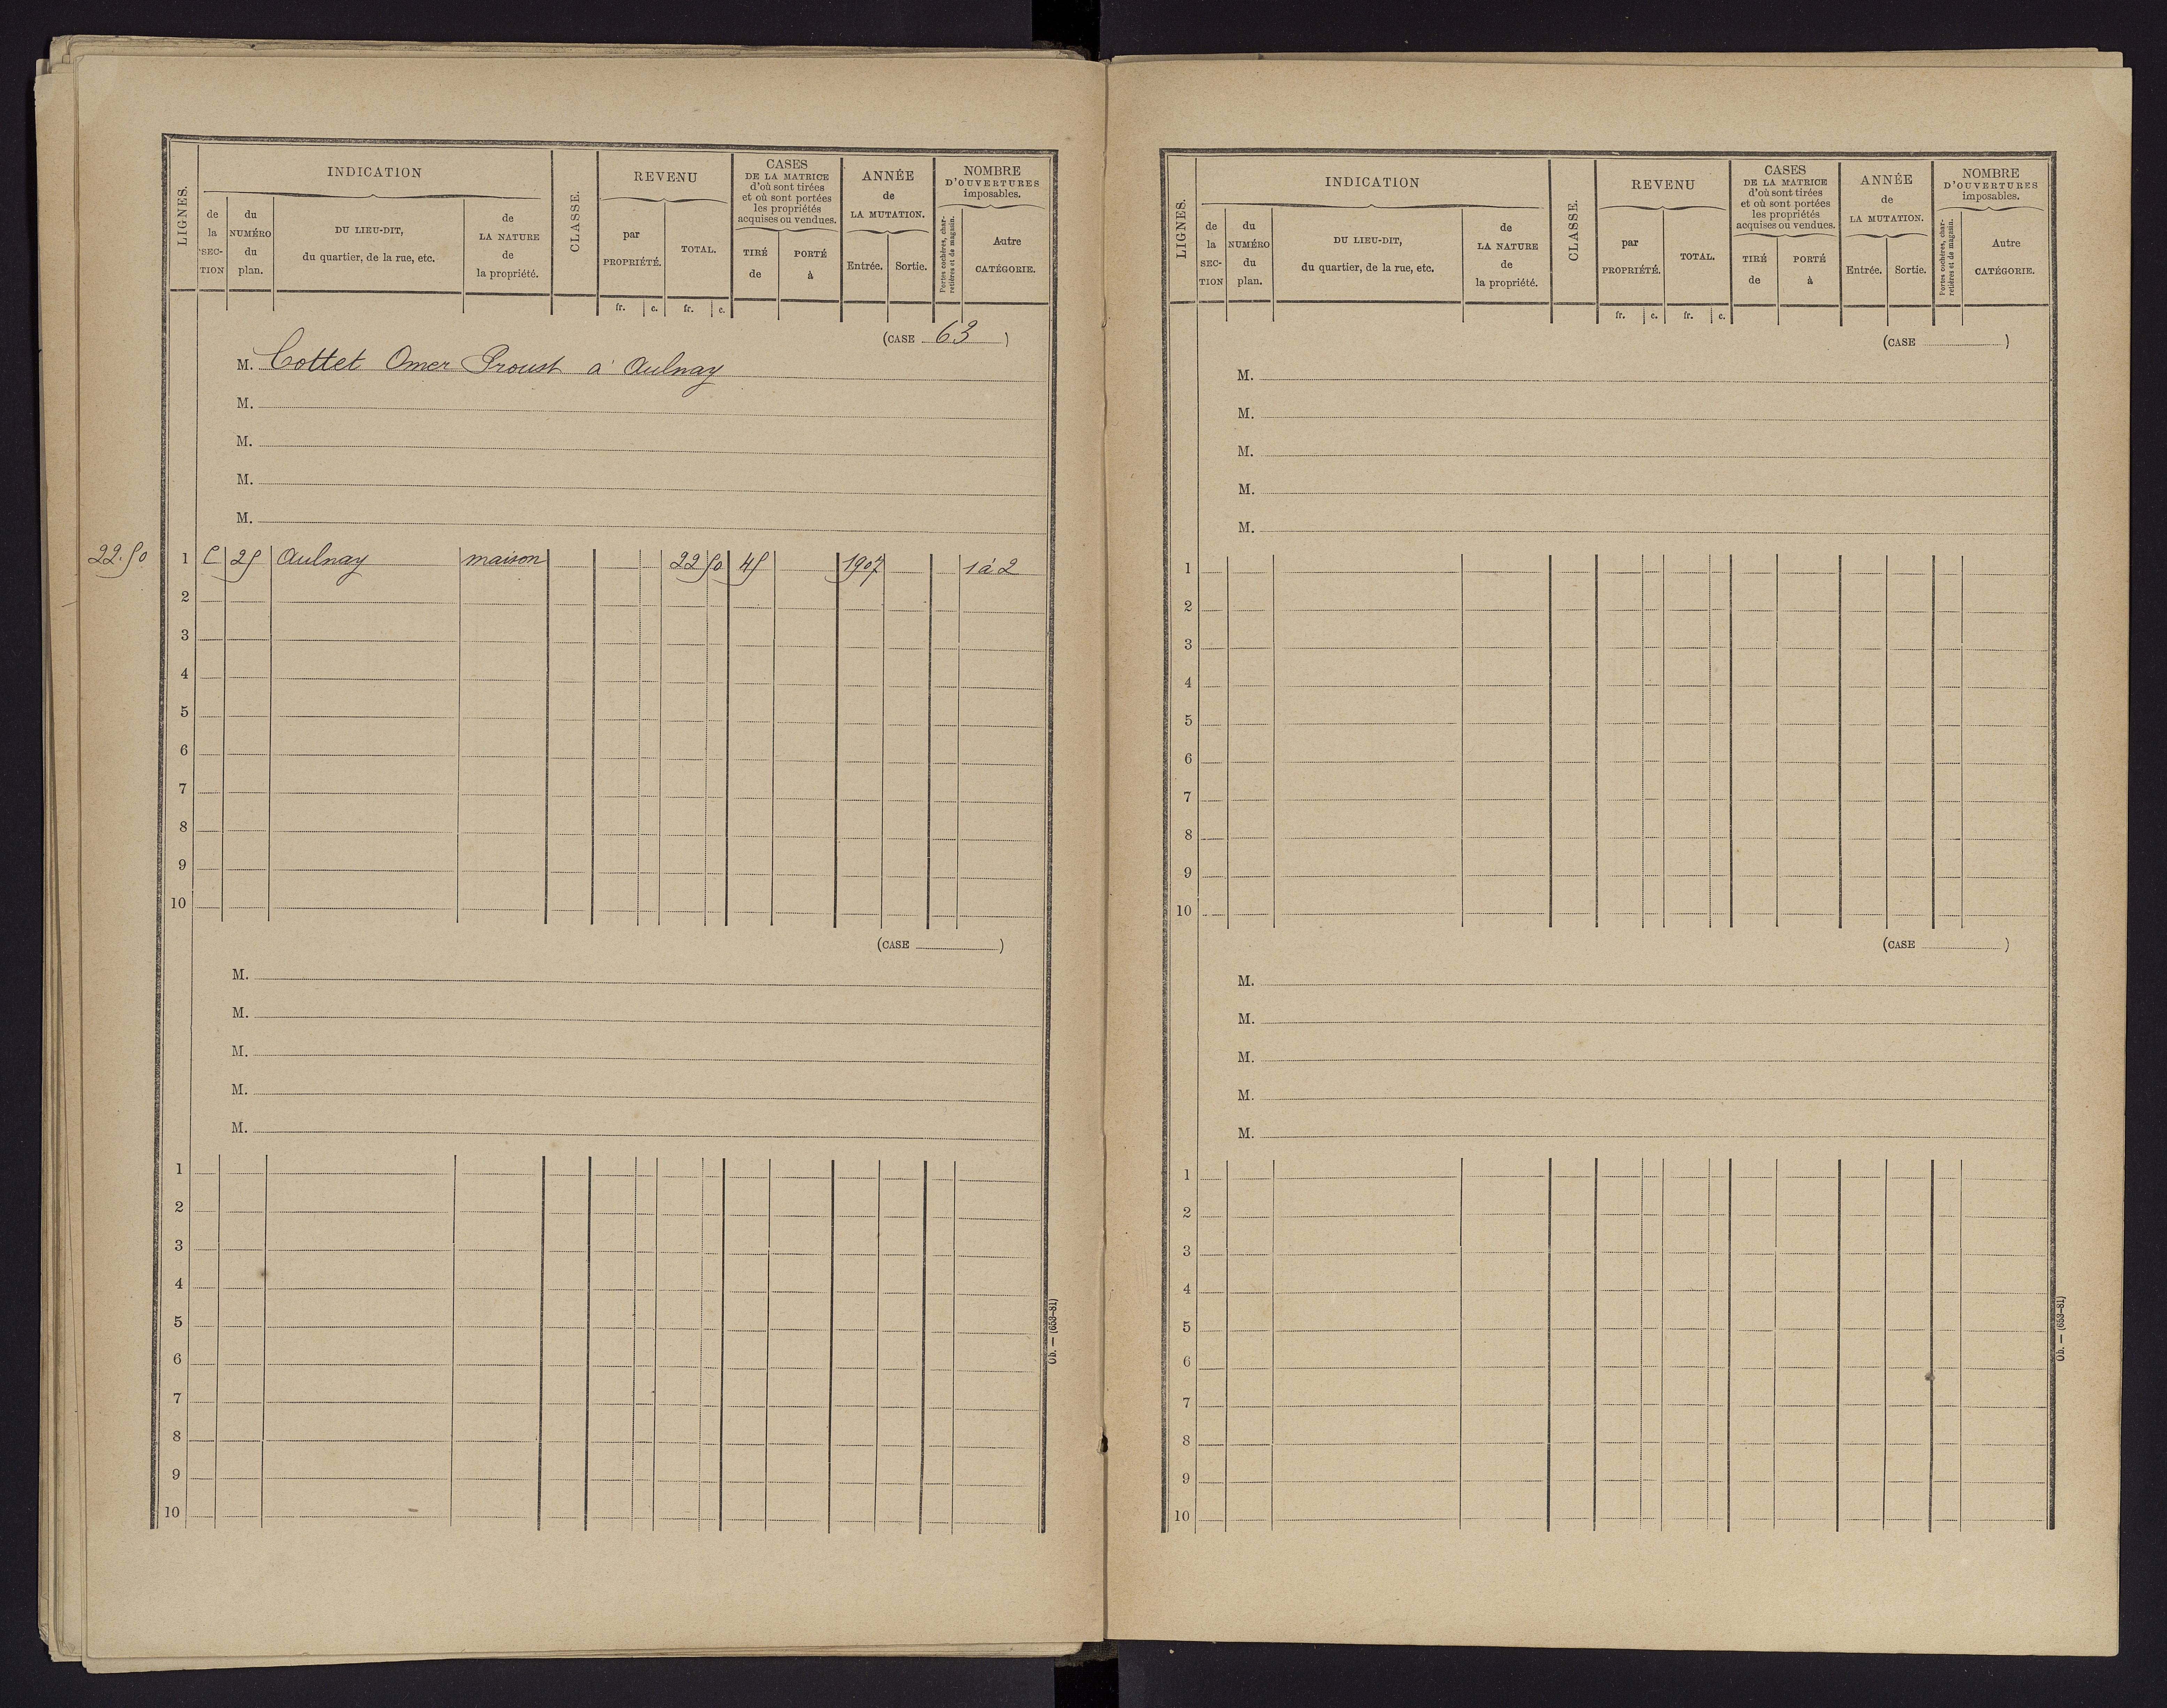 LIGNES.
INDICATION
de la SEC- TION
du NUMÉRO du plan.
DU LIEU-DIT, du quartier, de la rue, etc.
de LA NATURE de la propriété.
CLASSE.
REVENU
par PROPRIÉTÉ.
TOTAL.
CASES DE LA MATRICE d'où sont tirées et où sont portées les propriétés acquises ou vendues.
TIRÉ de
PORTÉ à
ANNÉE de LA MUTATION.
Entrée.
Sortie.
NOMBRE D'OUVERTURES imposables.
Portes cochères, charretières et de magasin.
Autre CATÉGORIE.
fr. c. fr. c.
(CASE 63)
M. Cottet Omer Proust à Aulnay
M.
M.
M.
M.
22.50 1 C 25 Aulnay maison 22 50 45 1907 1 à 2
2
3
4
5
6
7
8
9
10
(CASE )
M.
M.
M.
M.
M.
1
2
3
4
5
6
7
8
9
10
Ob. — (653-81)
LIGNES.
INDICATION
de la SEC- TION
du NUMÉRO du plan.
DU LIEU-DIT, du quartier, de la rue, etc.
de LA NATURE de la propriété.
CLASSE.
REVENU
par PROPRIÉTÉ.
TOTAL.
CASES DE LA MATRICE d'où sont tirées et où sont portées les propriétés acquises ou vendues.
TIRÉ de
PORTÉ à
ANNÉE de LA MUTATION.
Entrée.
Sortie.
NOMBRE D'OUVERTURES imposables.
Portes cochères, charretières et de magasin.
Autre CATÉGORIE.
fr. c. fr. c.
(CASE )
M.
M.
M.
M.
M.
1
2
3
4
5
6
7
8
9
10
(CASE )
M.
M.
M.
M.
M.
1
2
3
4
5
6
7
8
9
10
Ob. — (653-81)